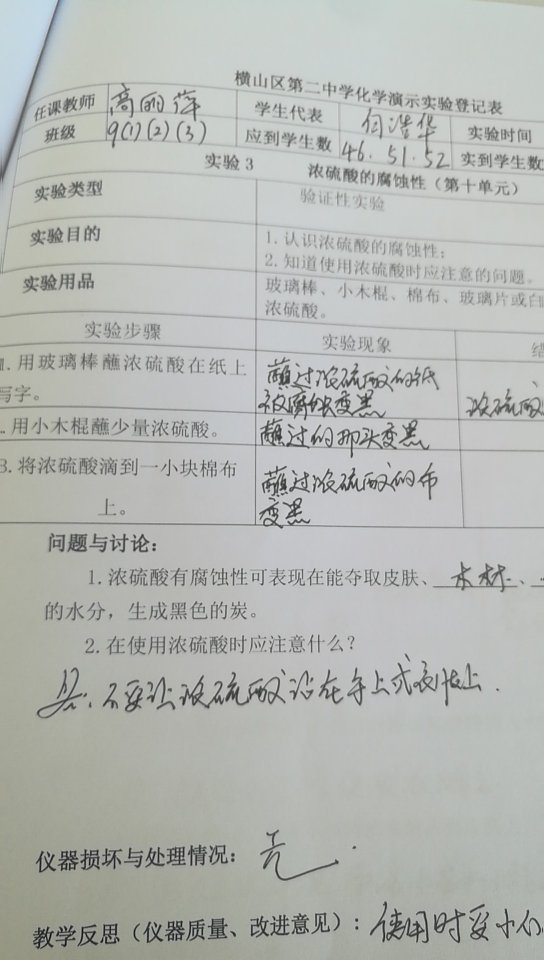 横山区第二中学化学演示实验登记表
任课教师 高丽萍 学生代表 白浩华 实验时间
班级 9(1)(2)(3) 应到学生数 46.51.52 实到学生数
实验3 浓硫酸的腐蚀性（第十单元）
实验类型 验证性实验
实验目的 1.认识浓硫酸的腐蚀性；
2.知道使用浓硫酸时应注意的问题。
实验用品 玻璃棒、小木棍、棉布、玻璃片或白
浓硫酸。
实验步骤 实验现象 结
1.用玻璃棒蘸浓硫酸在纸上 蘸过浓硫酸的纸
写字。 被腐蚀变黑 浓硫酸
.用小木棍蘸少量浓硫酸。 蘸过的那头变黑
3.将浓硫酸滴到一小块棉布 蘸过浓硫酸的布
上。 变黑
问题与讨论：
1.浓硫酸有腐蚀性可表现在能夺取皮肤、木材、
的水分，生成黑色的炭。
2.在使用浓硫酸时应注意什么？
答：不要让浓硫酸沾在手上或衣服上.
仪器损坏与处理情况：无.
教学反思（仪器质量、改进意见）：使用时要小心